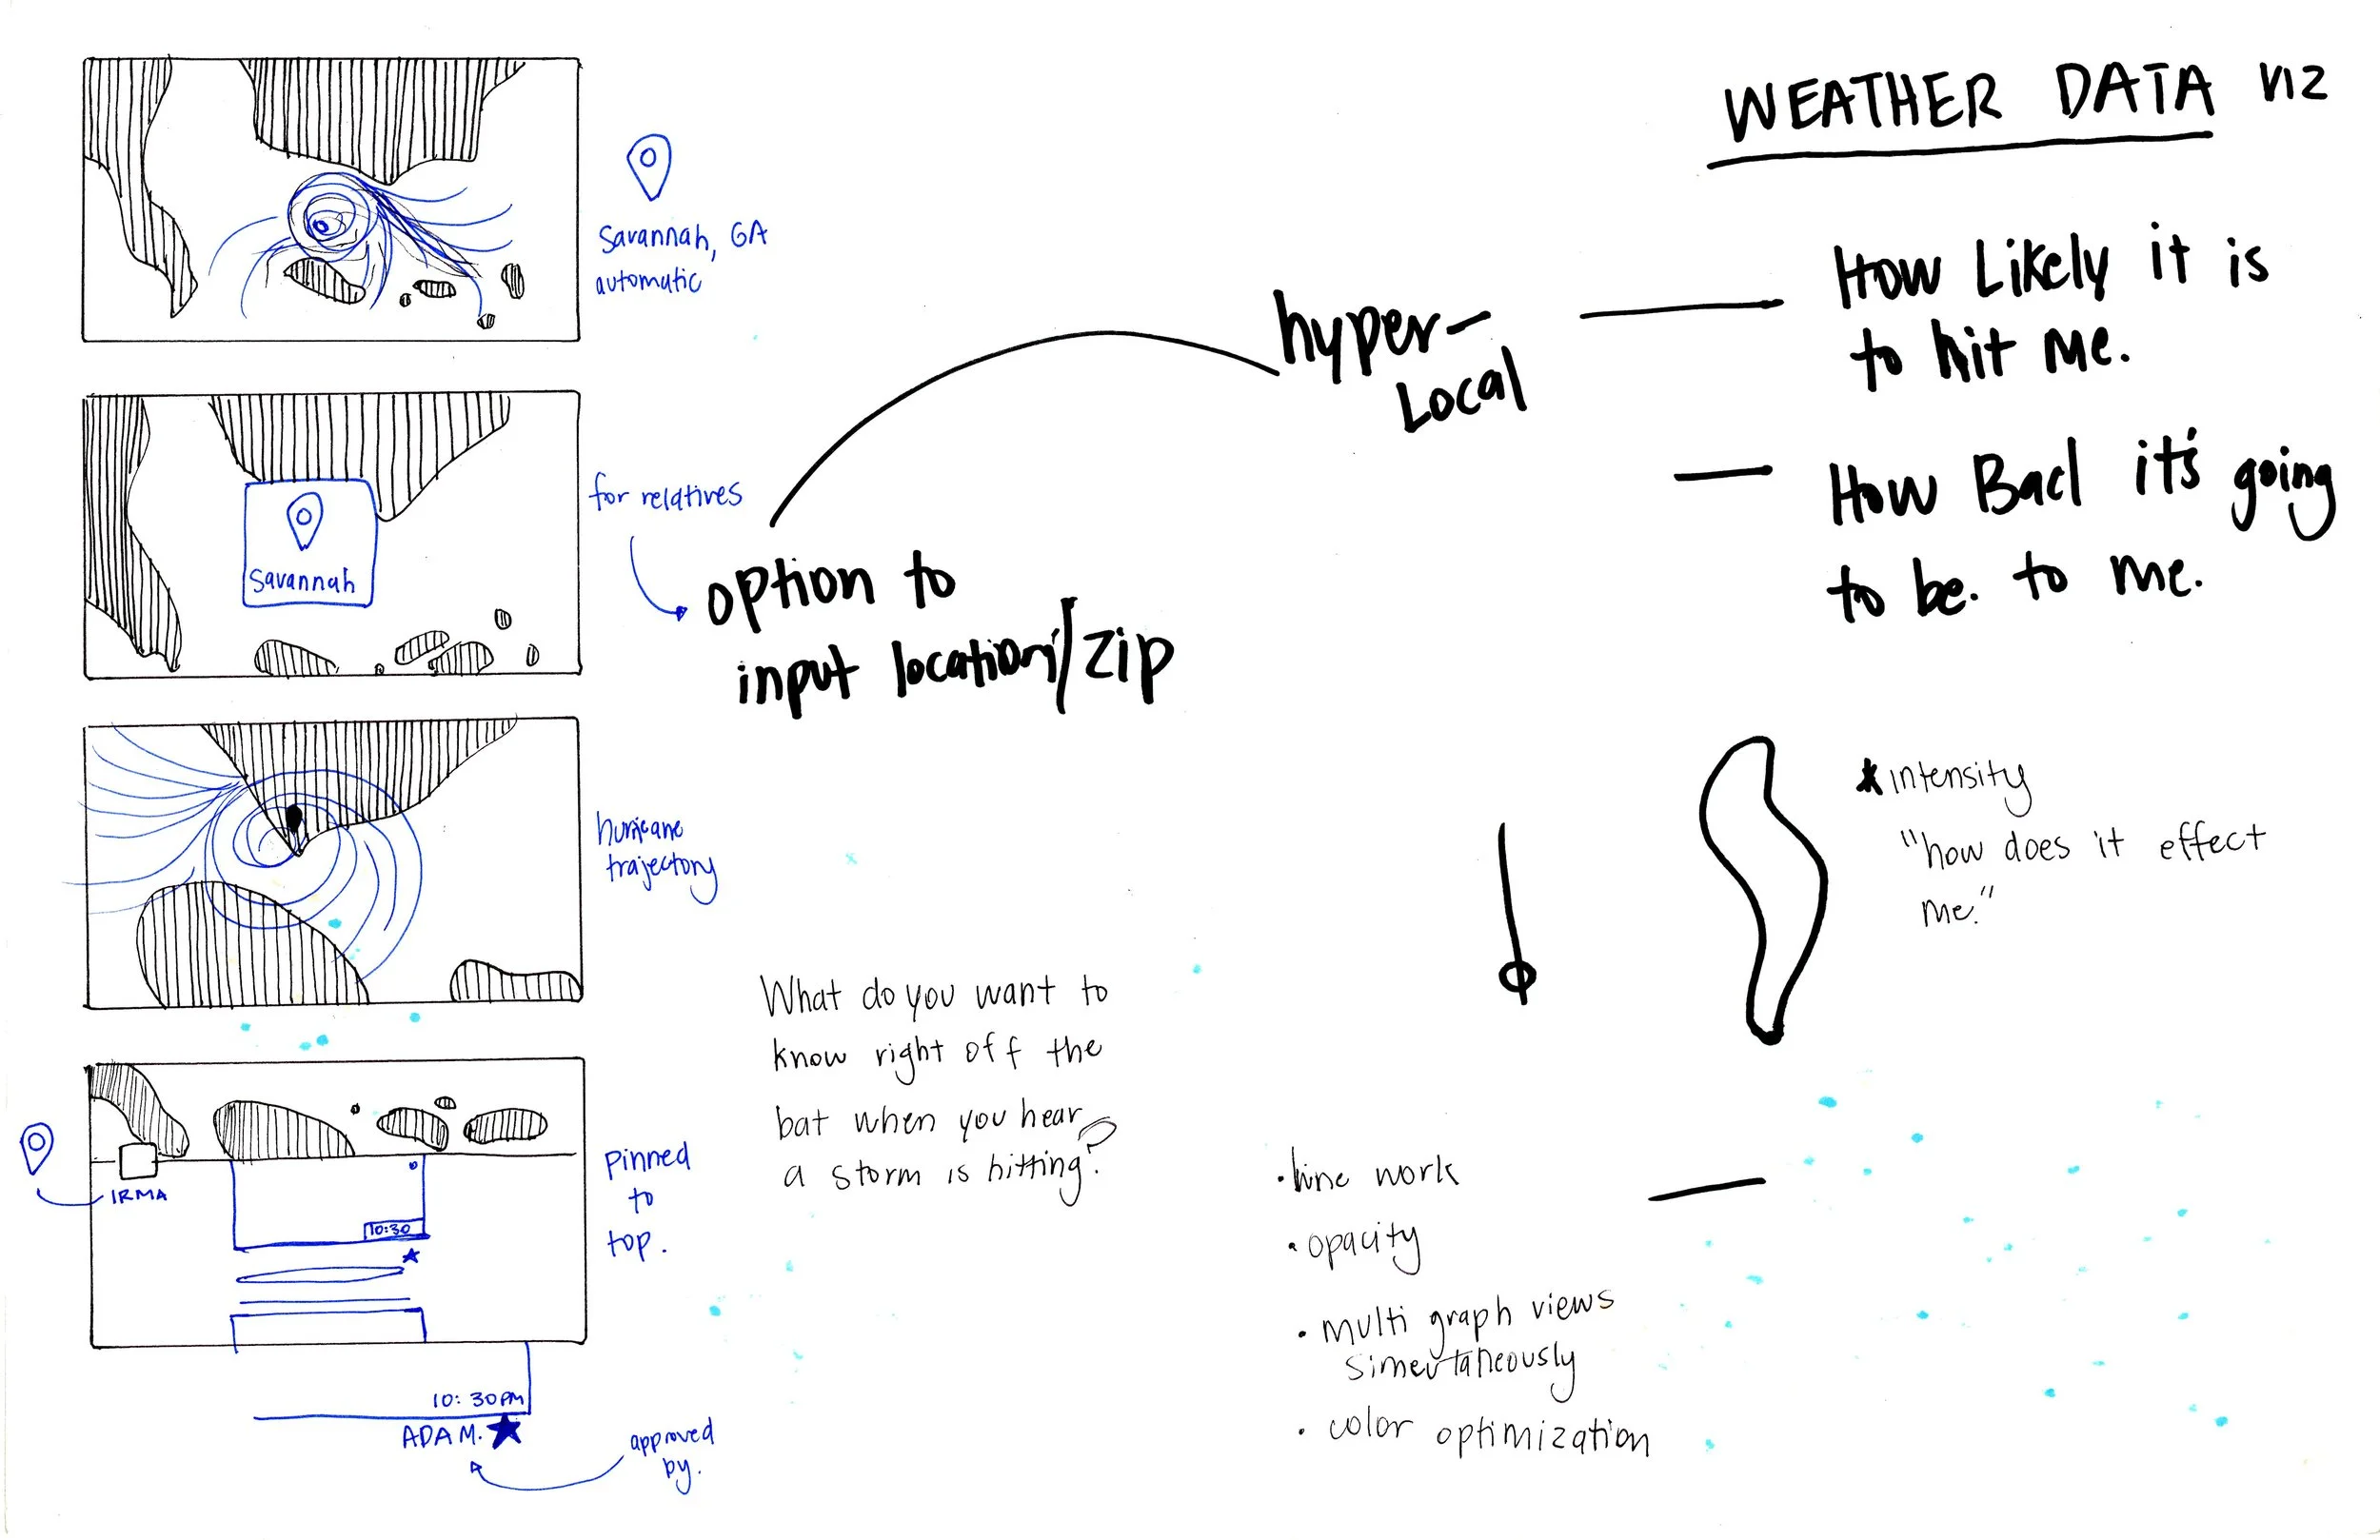 WEATHER DATA VIZ
Savannah, GA
automatic
hyper-
Local
How Likely it is
to hit me.
How Bad it's going
to be. to me.
Savannah
for relatives
option to
input location/zip
huricane
trajectory
*intensity
"how does it effect
me."
What do you want to
know right off the
bat when you hear
a storm is hitting?
IRMA
10:30
Pinned
to
top.
10:30PM
ADAM.
approved
by.
• line work
• opacity
• multi graph views
simeultaneously
• color optimization